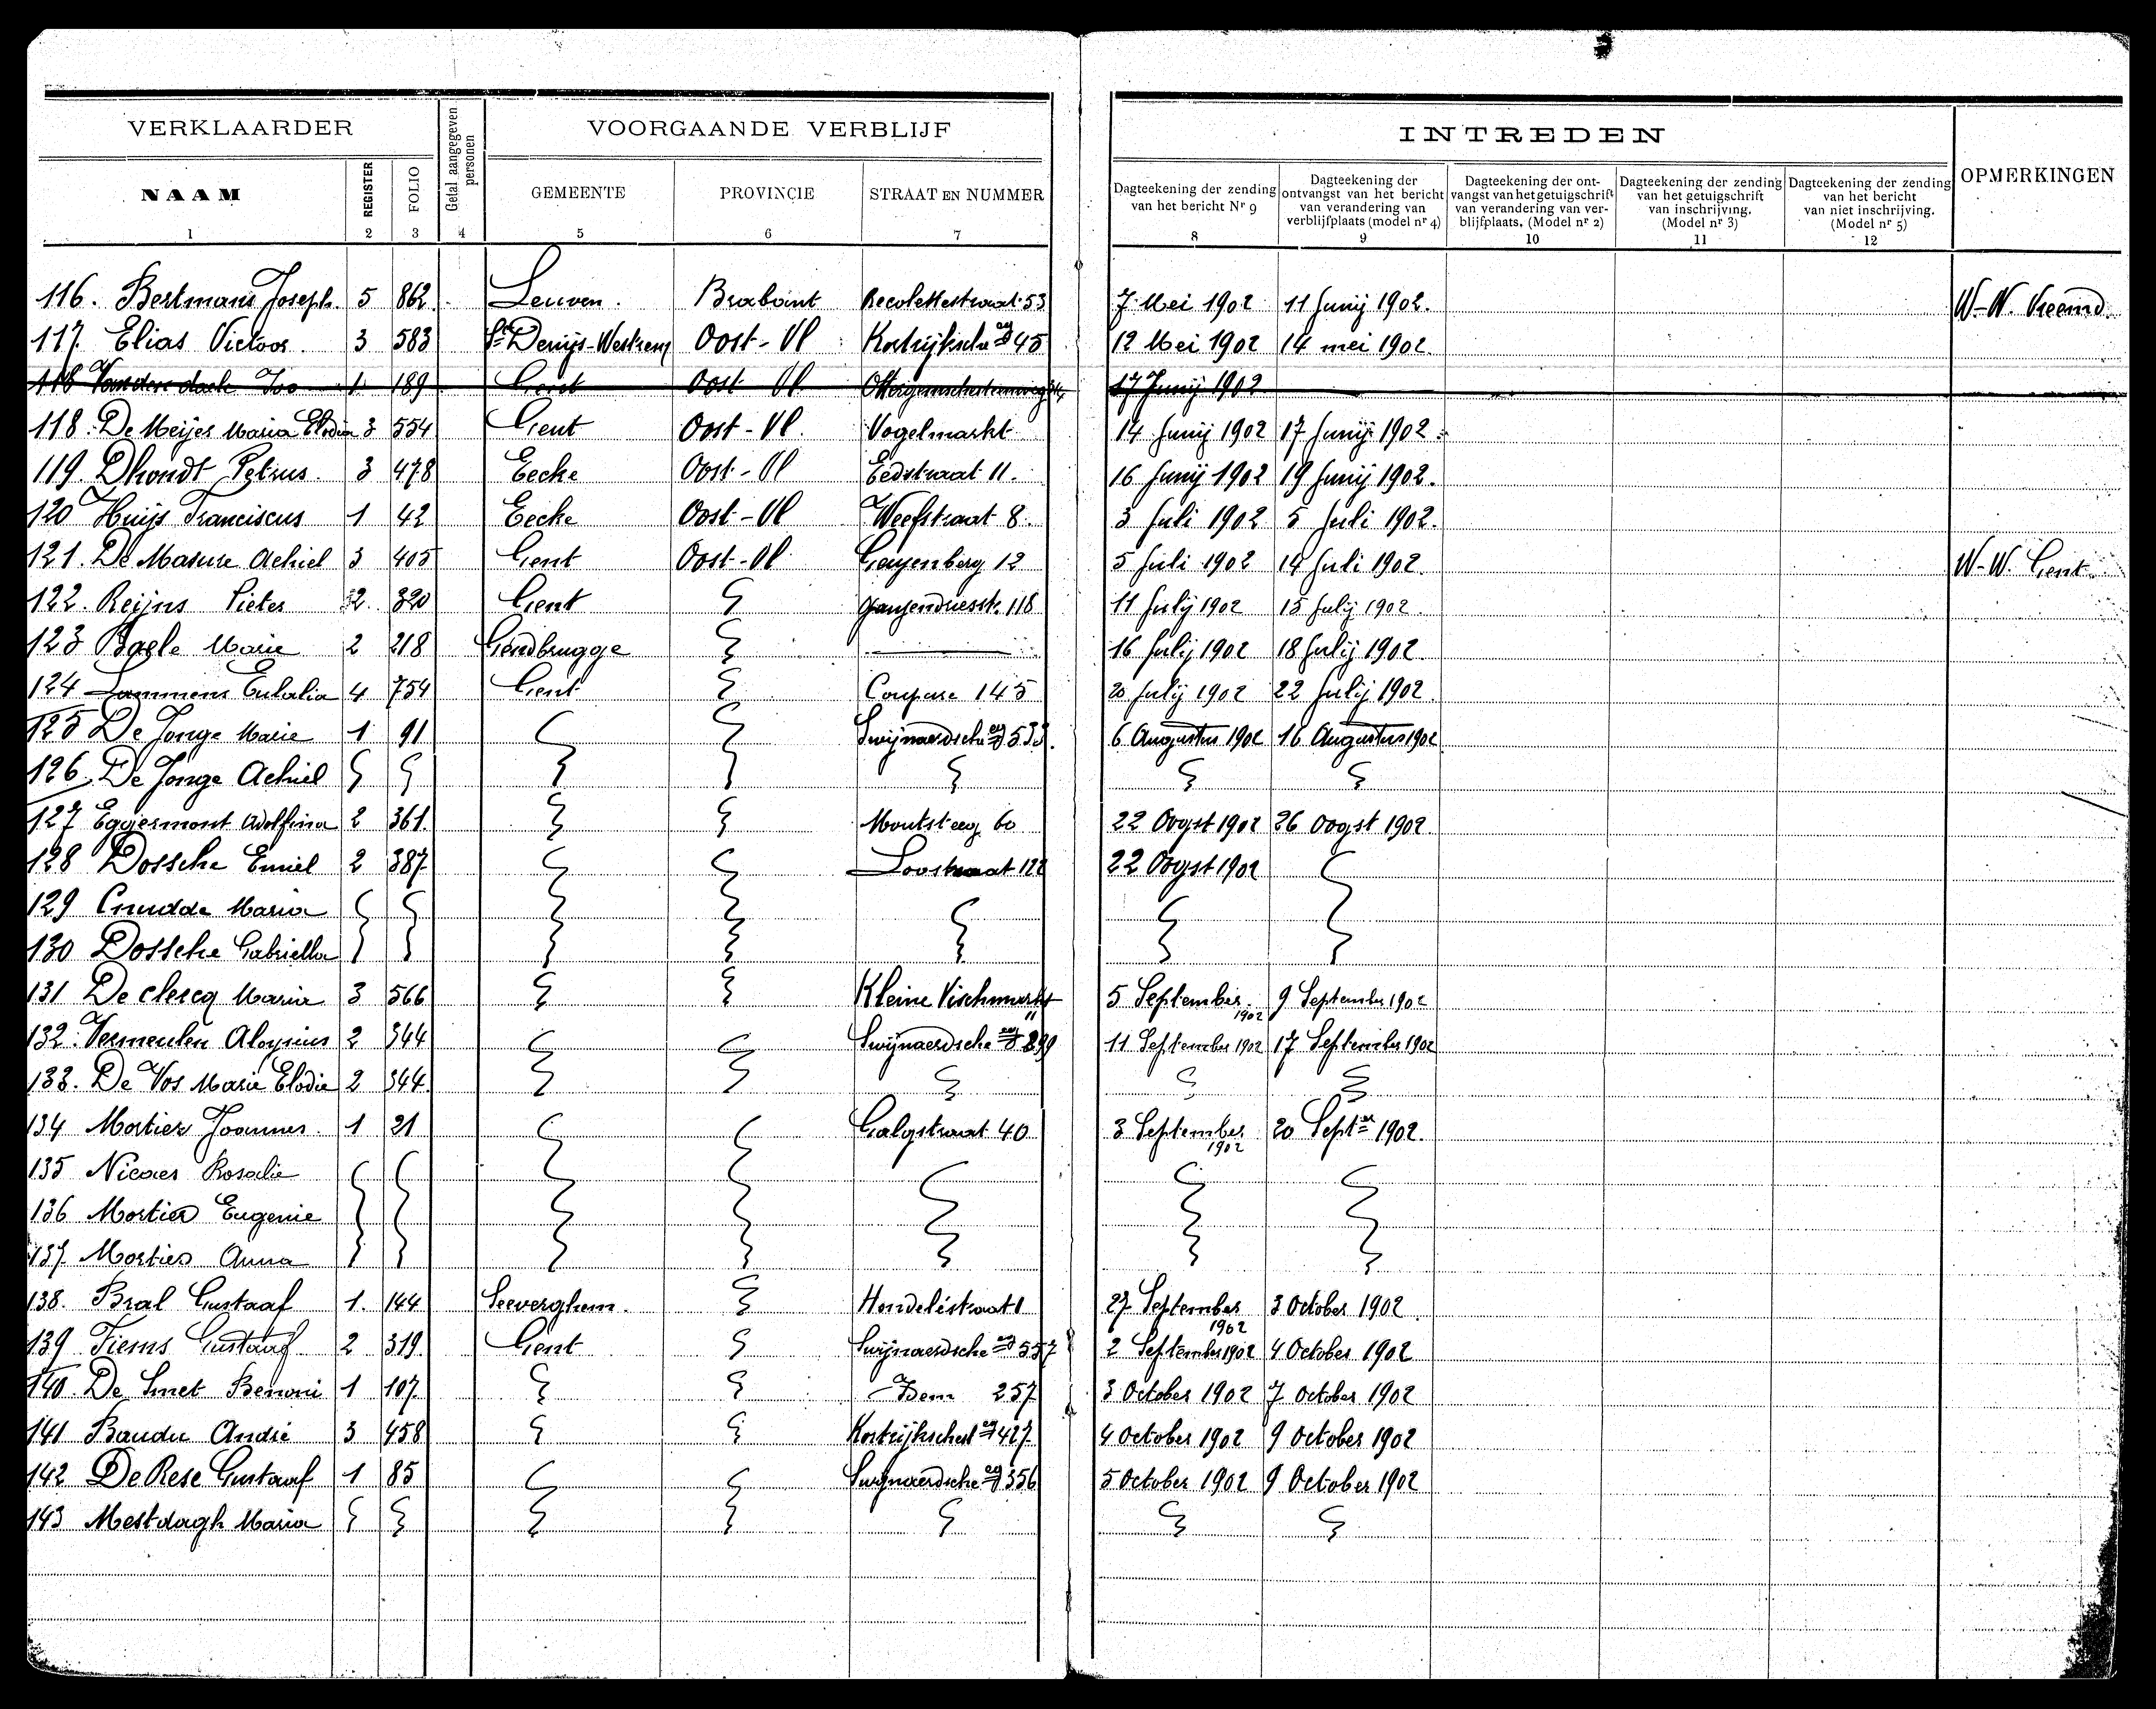 VERKLAARDER
Getal aangegeven personen
VOORGAANDE VERBLIJF
INTREDEN
OPMERKINGEN
NAAM REGISTER FOLIO GEMEENTE PROVINCIE STRAAT EN NUMMER
Dagteekening der zending van het bericht Nr 9
Dagteekening der ontvangst van het bericht van verandering van verblijfplaats (model nr 4)
Dagteekening der ontvangst van het getuigschrift van verandering van verblijfplaats. (Model nr 2)
Dagteekening der zending van het getuigschrift van inschrijving. (Model nr 3)
Dagteekening der zending van het bericht van niet inschrijving. (Model nr 5)
1 2 3 4 5 6 7 8 9 10 11 12
116. Bertmans Joseph. 5 862 Leuven. Brabant Recolettestraat 53 7 Mei 1902 11 Junij 1902. W-W. Vreemd.
117. Elias Victoor. 3 583 St Denijs-Westrem Oost-Vl Kortrijksche 45 12 Mei 1902 14 mei 1902.
118 1 189 Gent Oost-Vl 17 Junij 1902
118. De Meijer Maria Elodia 3 554 Gent Oost-Vl. Vogelmarkt 14 Junij 1902 17 Junij 1902
119. Dhondt Petrus. 3 478 Eecke Oost-Vl Eedstraat 11. 16 Junij 1902 19 Junij 1902.
120 Huijs Franciscus 1 42 Eecke Oost-Vl Weefstraat 8. 3 Juli 1902 5 Juli 1902.
121. De Masure Achiel 3 405 Gent Oost-Vl. 12 5 Juli 1902 14 Juli 1902. W-W. Gent.
122. Reijns Pieter 2. 320 Gent 118 11 Julij 1902 15 Julij 1902.
123 Baele Marie 2 218 Gendbrugge 16 Julij 1902 18 Julij 1902
124 Lammens Eulalia 4 754 Gent Coupure 145 20 Julij 1902 22 Julij 1902.
125 De Jonge Marie 1 91 Swijnaerdsche 533. 6 Augustus 1902 16 Augustus 1902
126. De Jonge Achiel
127 Eggermont Adolfina 2 361. Moutsteeg 60 22 Oogst 1902 26 Oogst 1902.
128 Dossche Emiel 2 387. Loostraat 122 22 Oogst 1902
129 Cnudde Maria
130 Dossche Gabriella
131 De Clercq Maria 3 566 Kleine Vischmarkt 11 5 September 1902 9 September 1902
132. Vermeulen Aloysius 2 344 Swijnaerdsche 299 11 September 1902 17 September 1902
133. De Vos Marie Elodie 2 344.
134 Mortier Joannes. 1 21 Galgstraat 40 3 September 1902 20 Septer 1902.
135 Nicaes Rosalie
136 Mortier Eugenie
137. Mortier Anna
138. Bral Gustaaf 1. 144 Seeverghem. 27 September 1902 3 October 1902.
139 Fiems Gustaaf 2 319. Gent Swijnaerdsche 557 2 September 1902 4 October 1902
140. De Smet Benoni 1 107 Idem 257 3 October 1902 7 October 1902
141 Baudu André 3 458 427. 4 October 1902 9 October 1902
142 De Rese Gustaaf 1 85 Swijnaerdsche 356 5 October 1902 9 October 1902
143 Mestdagh Maria